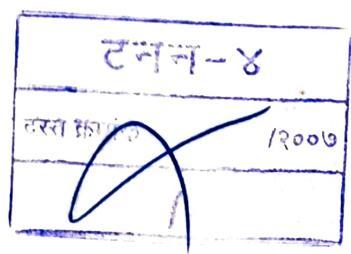 टनन-४
दस्त क्रमांक /२००७